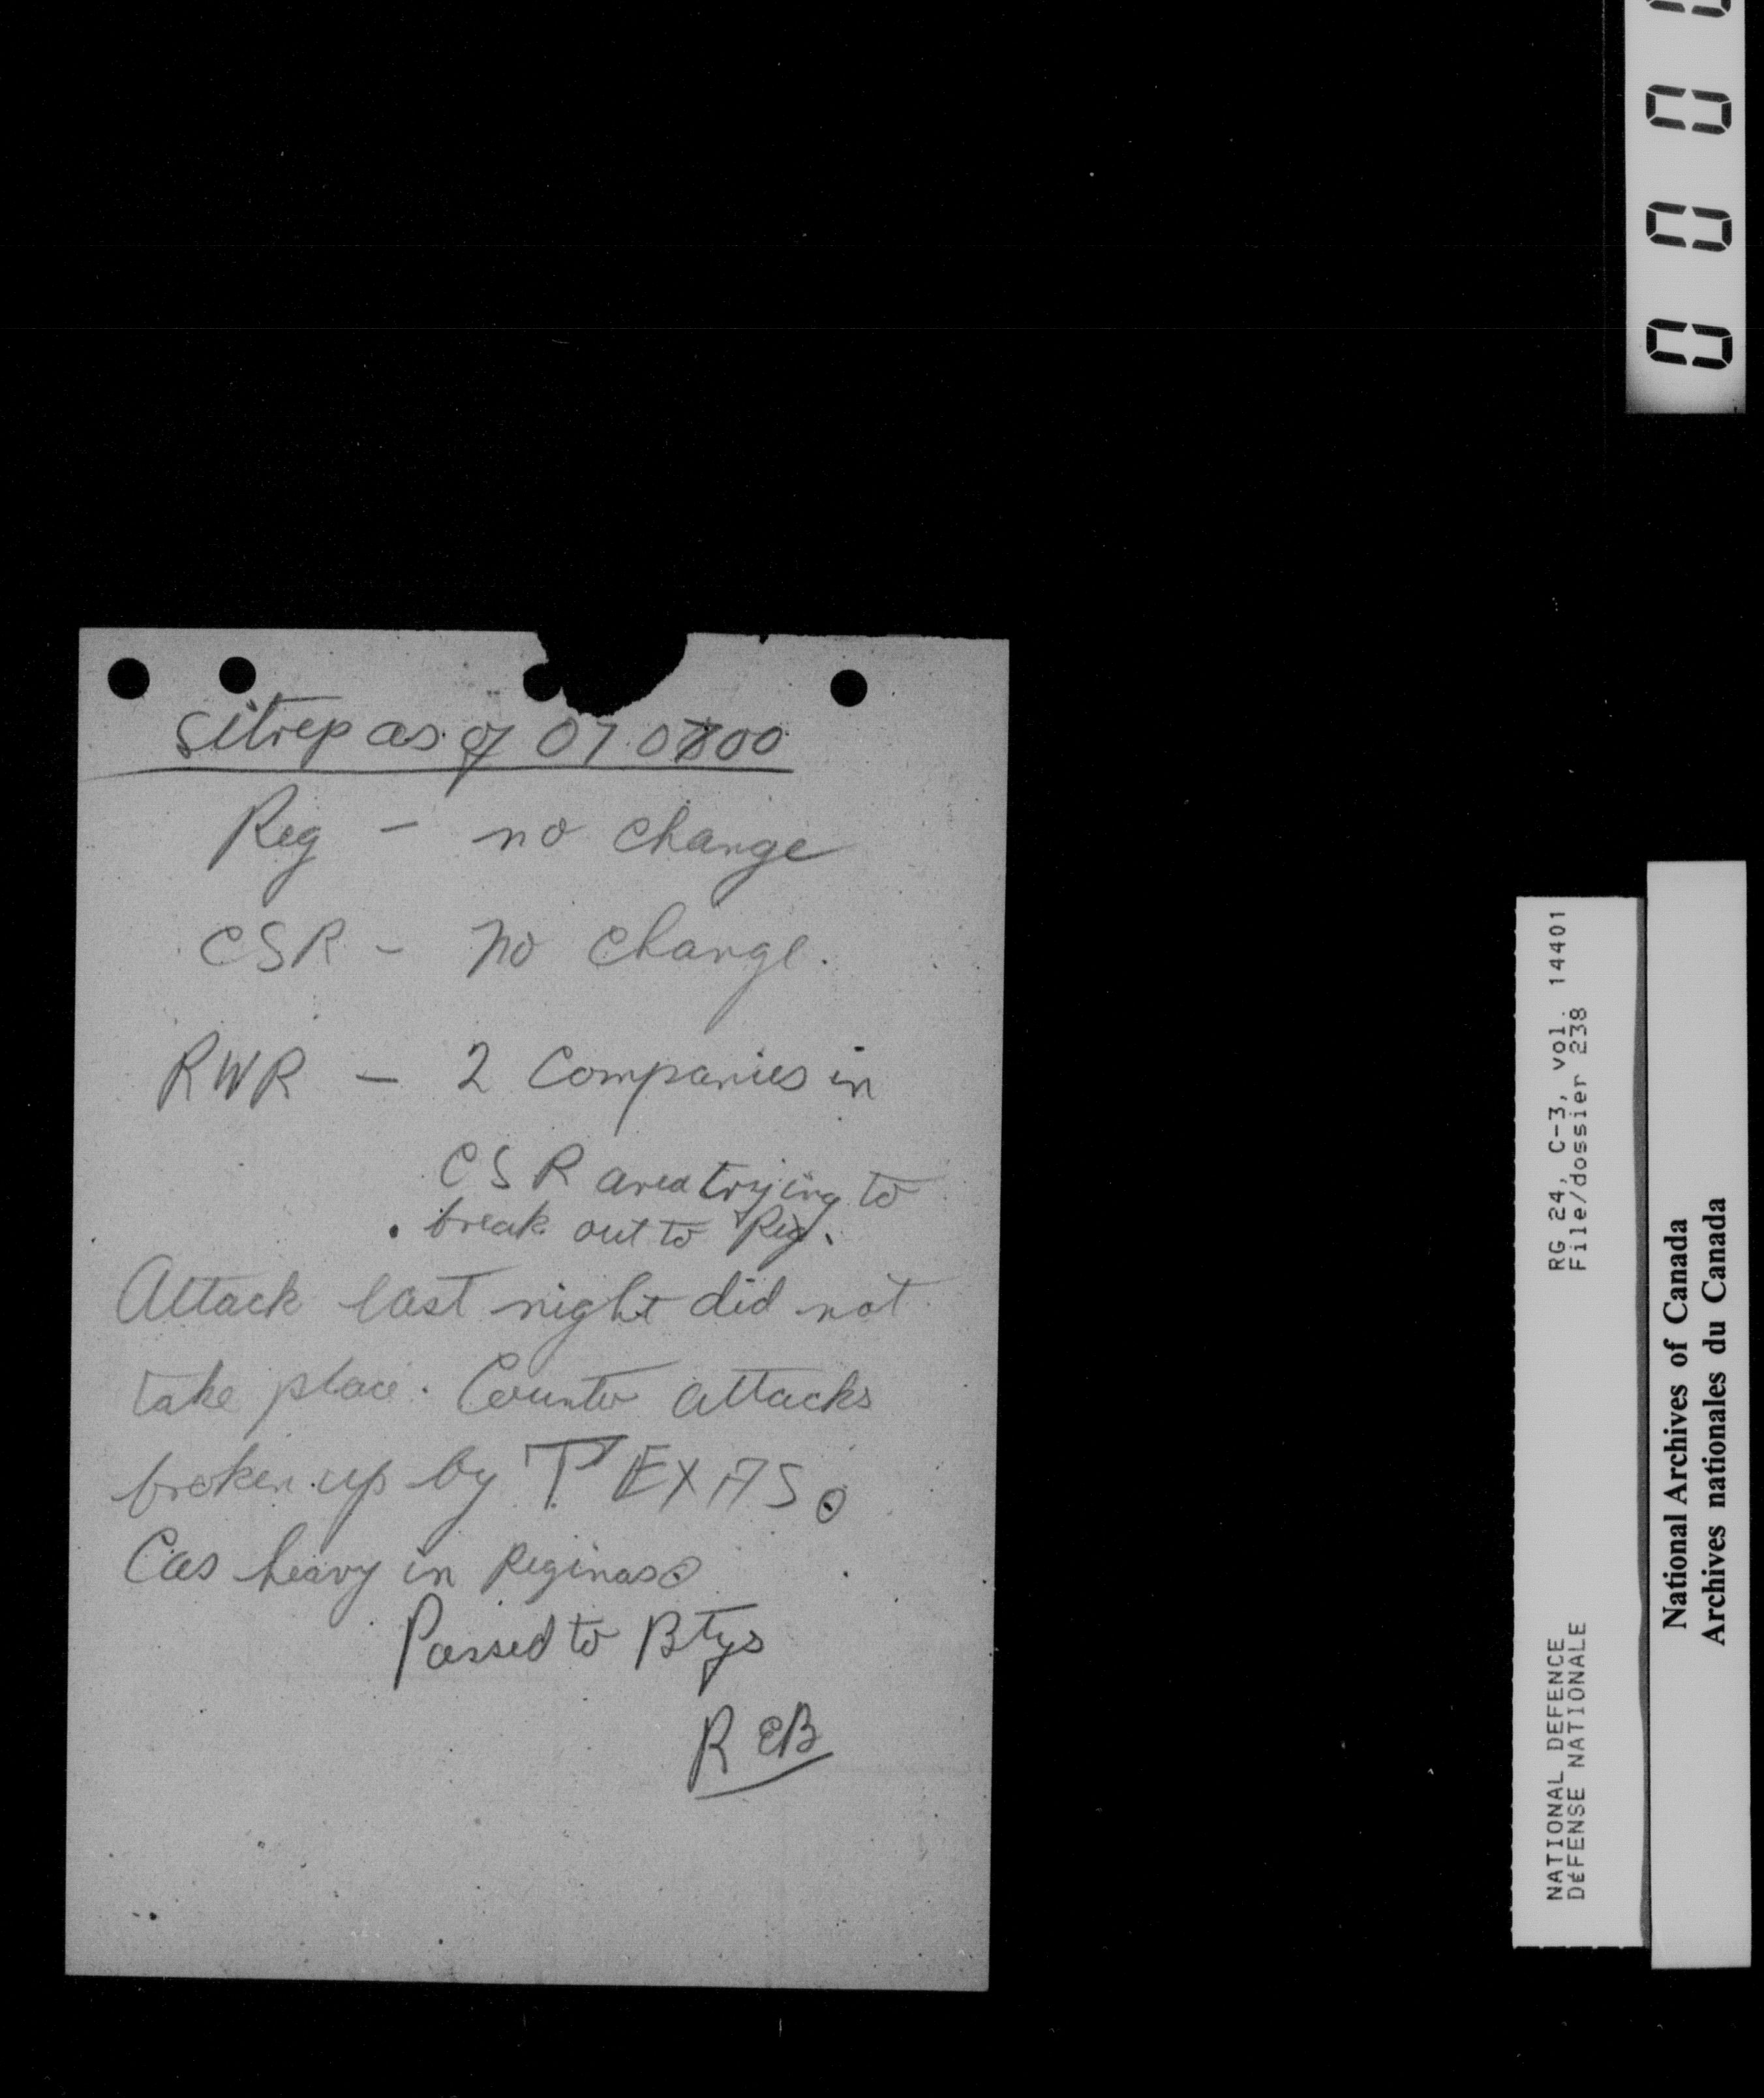 Sitrep as of 07 0800
Reg – no change
CSR – no change.
RWR – 2 Companies in
CSR area trying to
break out to Reg.
Attack last night did not
take place. Counter attacks
broken up by TEXAS.
Cas heavy in Reginas.
Passed to Btys
REB
0 0 0
RG 24, C-3, vol. 14401
File/dossier 238
NATIONAL DEFENCE
DÉFENSE NATIONALE
National Archives of Canada
Archives nationales du Canada